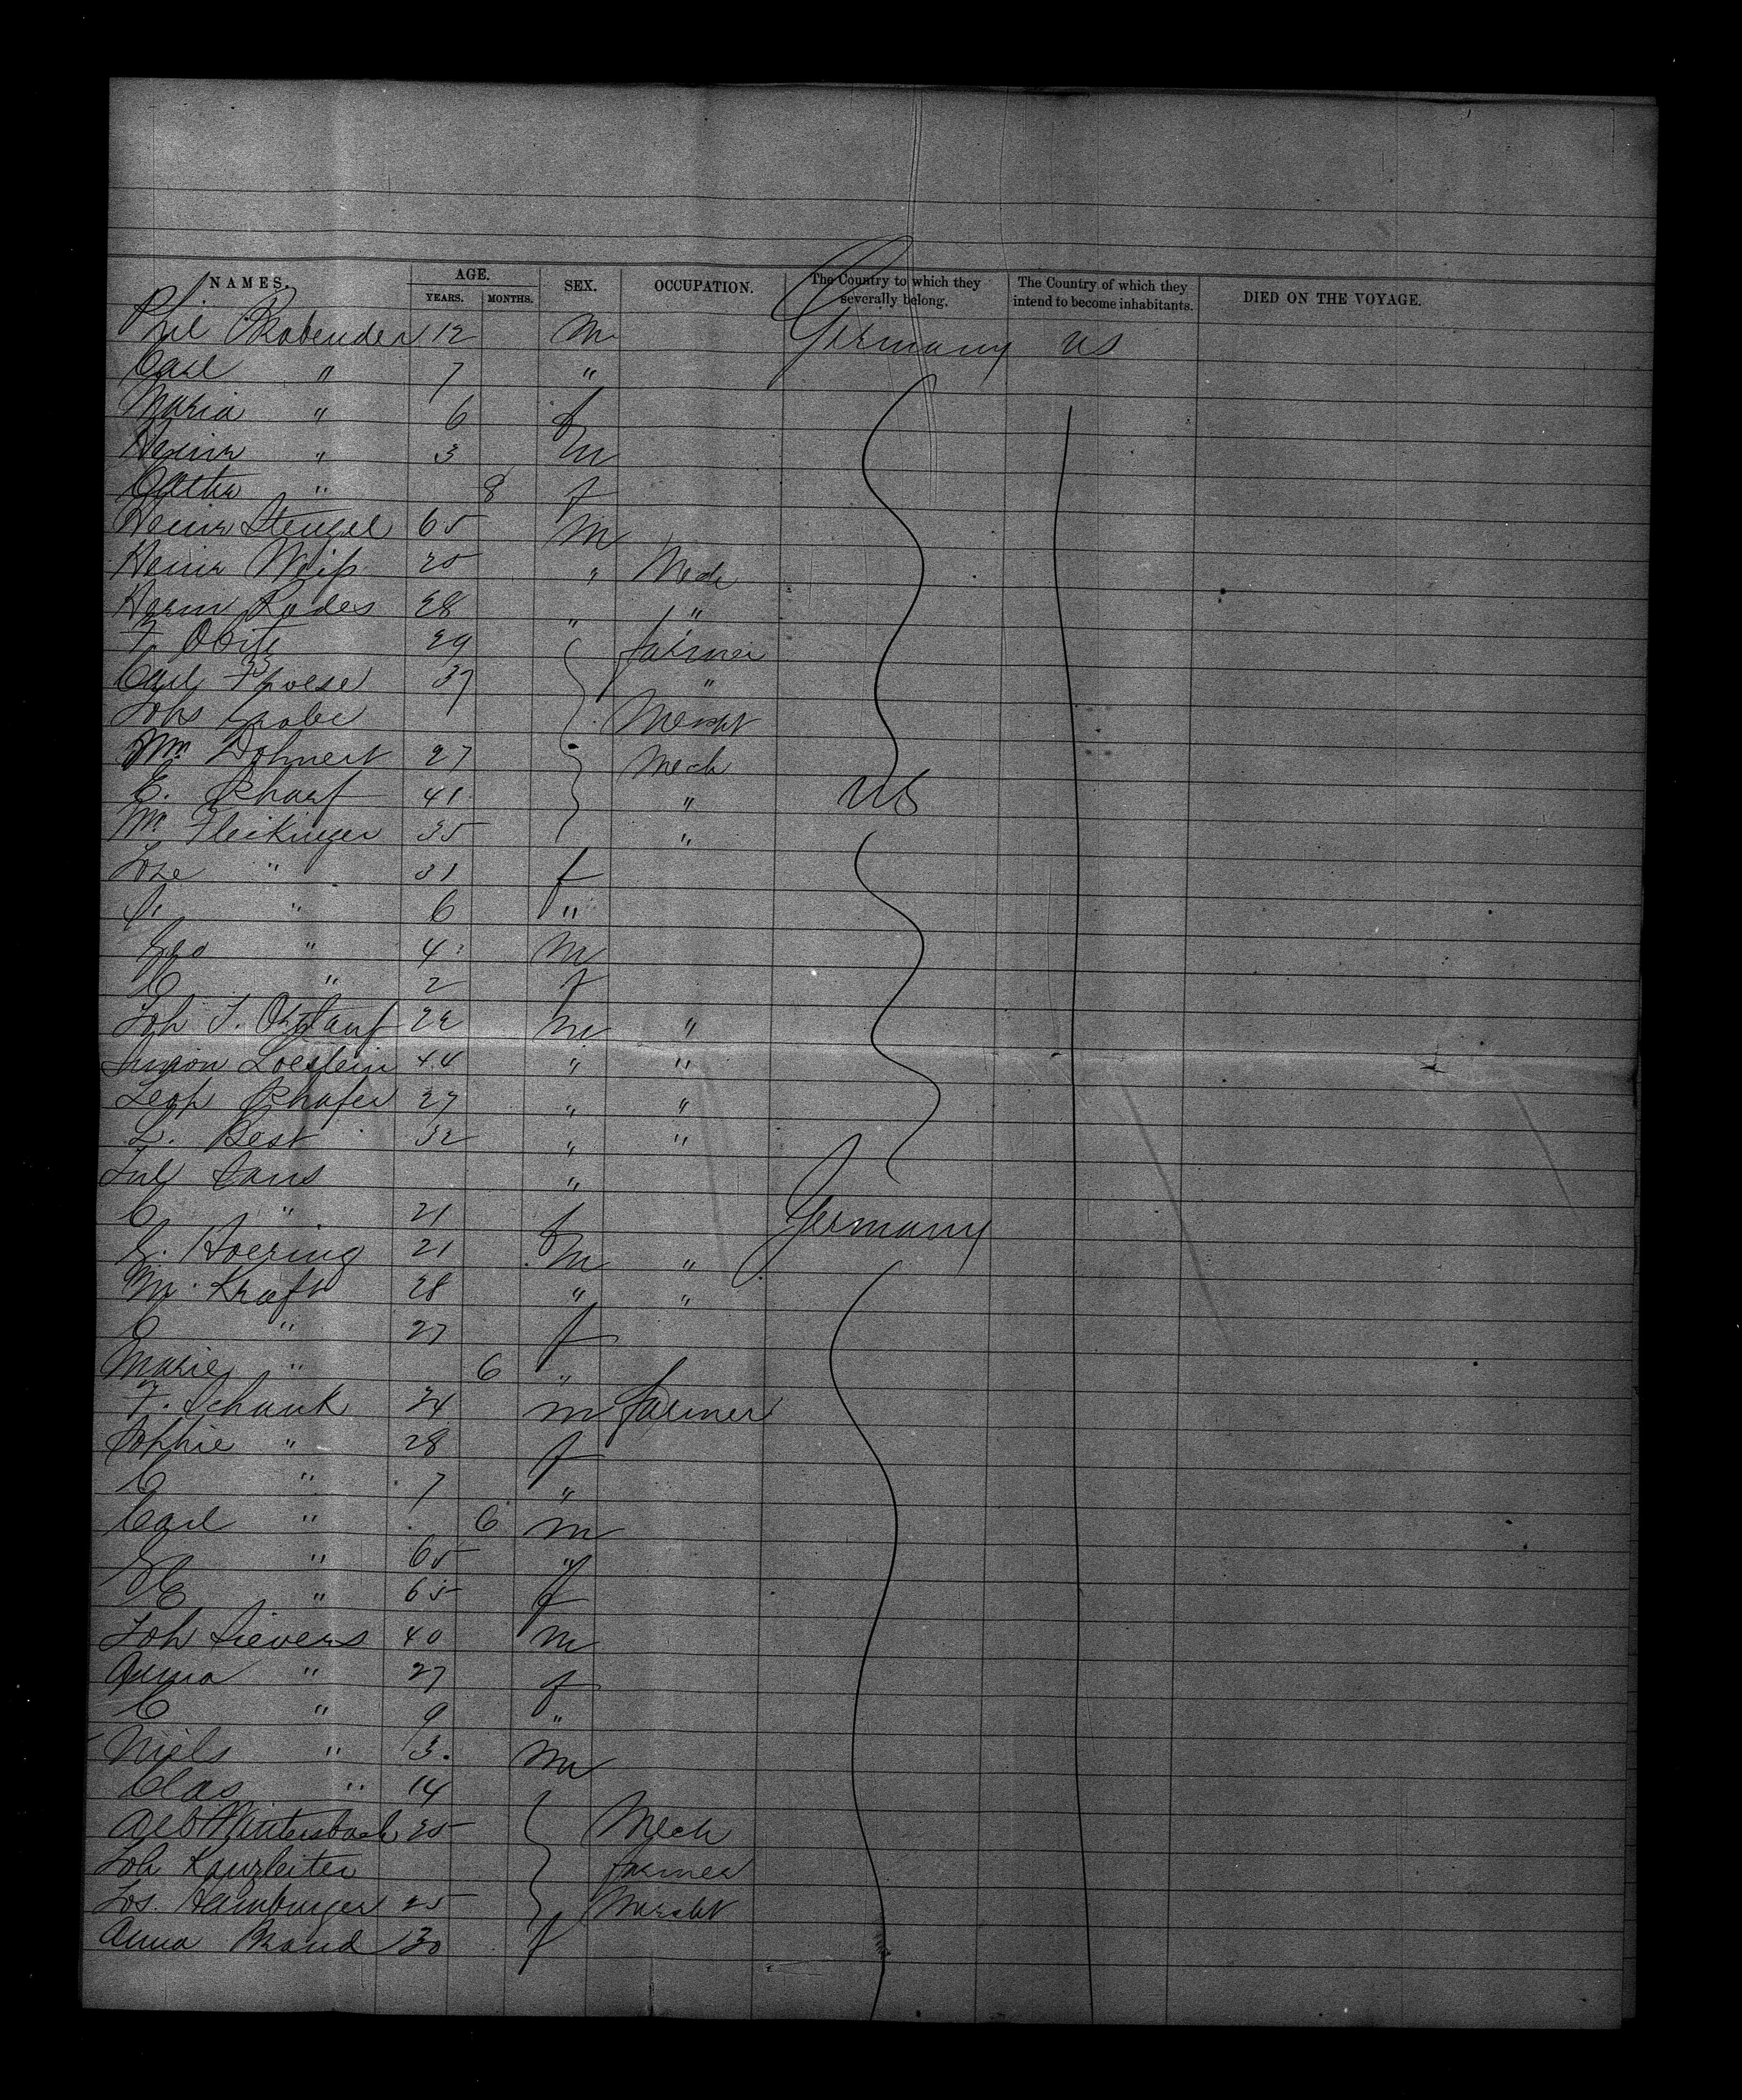 NAMES. AGE. YEARS. MONTHS. SEX. OCCUPATION. The Country to which they severally belong. The Country of which they intend to become inhabitants. DIED ON THE VOYAGE.
Phil Brabender 12 m Germany US
Carl " 7 "
Maria " 6 f
Heinr " 3 m
Catha " 8 f
Heinr Stengel 65 m
Heinr Weiß 25 " Mech
Herm Rodes 28 " "
F. 29 farmer
Carl 37 "
Johs Grabe Mercht
Mr Dohnert 27 Mech
C. Scharf 41 " US
Mr Fleikinger 35 "
Jose " 31 f
S. " 6 "
Geo " 4 m
C " 2 f
Joh J. 22 m "
Simon Loestein 44 " "
Leop Schafer 27 " "
L. Best 32 " "
Jul Sans "
C " 21 f Germany
G. Hoering 21 m "
M. Kraft 28 " "
C " 27 f
Marie " 6 "
F. Schunk 34 m farmer
Sophie " 28 f
C " 7 "
Carl " 6 m
G " 65 "
C " 65 f
Joh Sievers 40 m
Anna " 27 f
C " 9 "
Niels " 3. m
Clas " 14
Alb Wintersbach 25 Mech
Joh Kanzleiter farmer
Jos. Hamburger 25 Mercht
Anna Brand 30 f